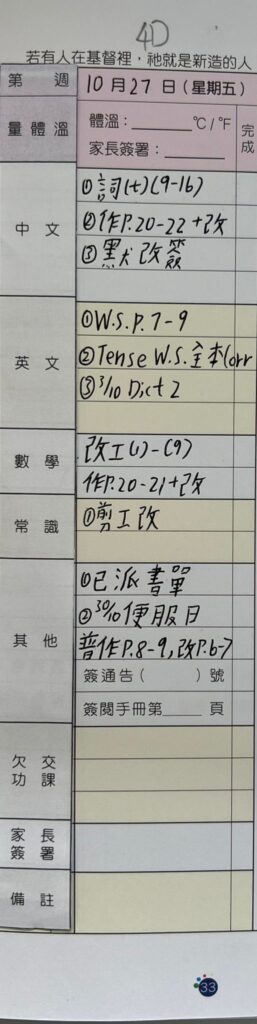 4D
若有人在基督裡，祂就是新造的人
第 週 10 月 27 日 (星期五)
量體溫 體溫：______°C / °F 完成
家長簽署：______
中文 ①詞(七)(9-16)
②作P.20-22+改
③默改簽
英文 ①W.S.p.7-9
②Tense W.S.全本(corr
③3/10 Dict 2
數學 改工(1)-(9)
作P.20-21+改
常識 ①剪工改
其他 ①已派書單
②30/10便服日
普作P.8-9,改P.6-7
簽通告( )號
簽閱手冊第____頁
欠交功課
家長簽署
備註
33